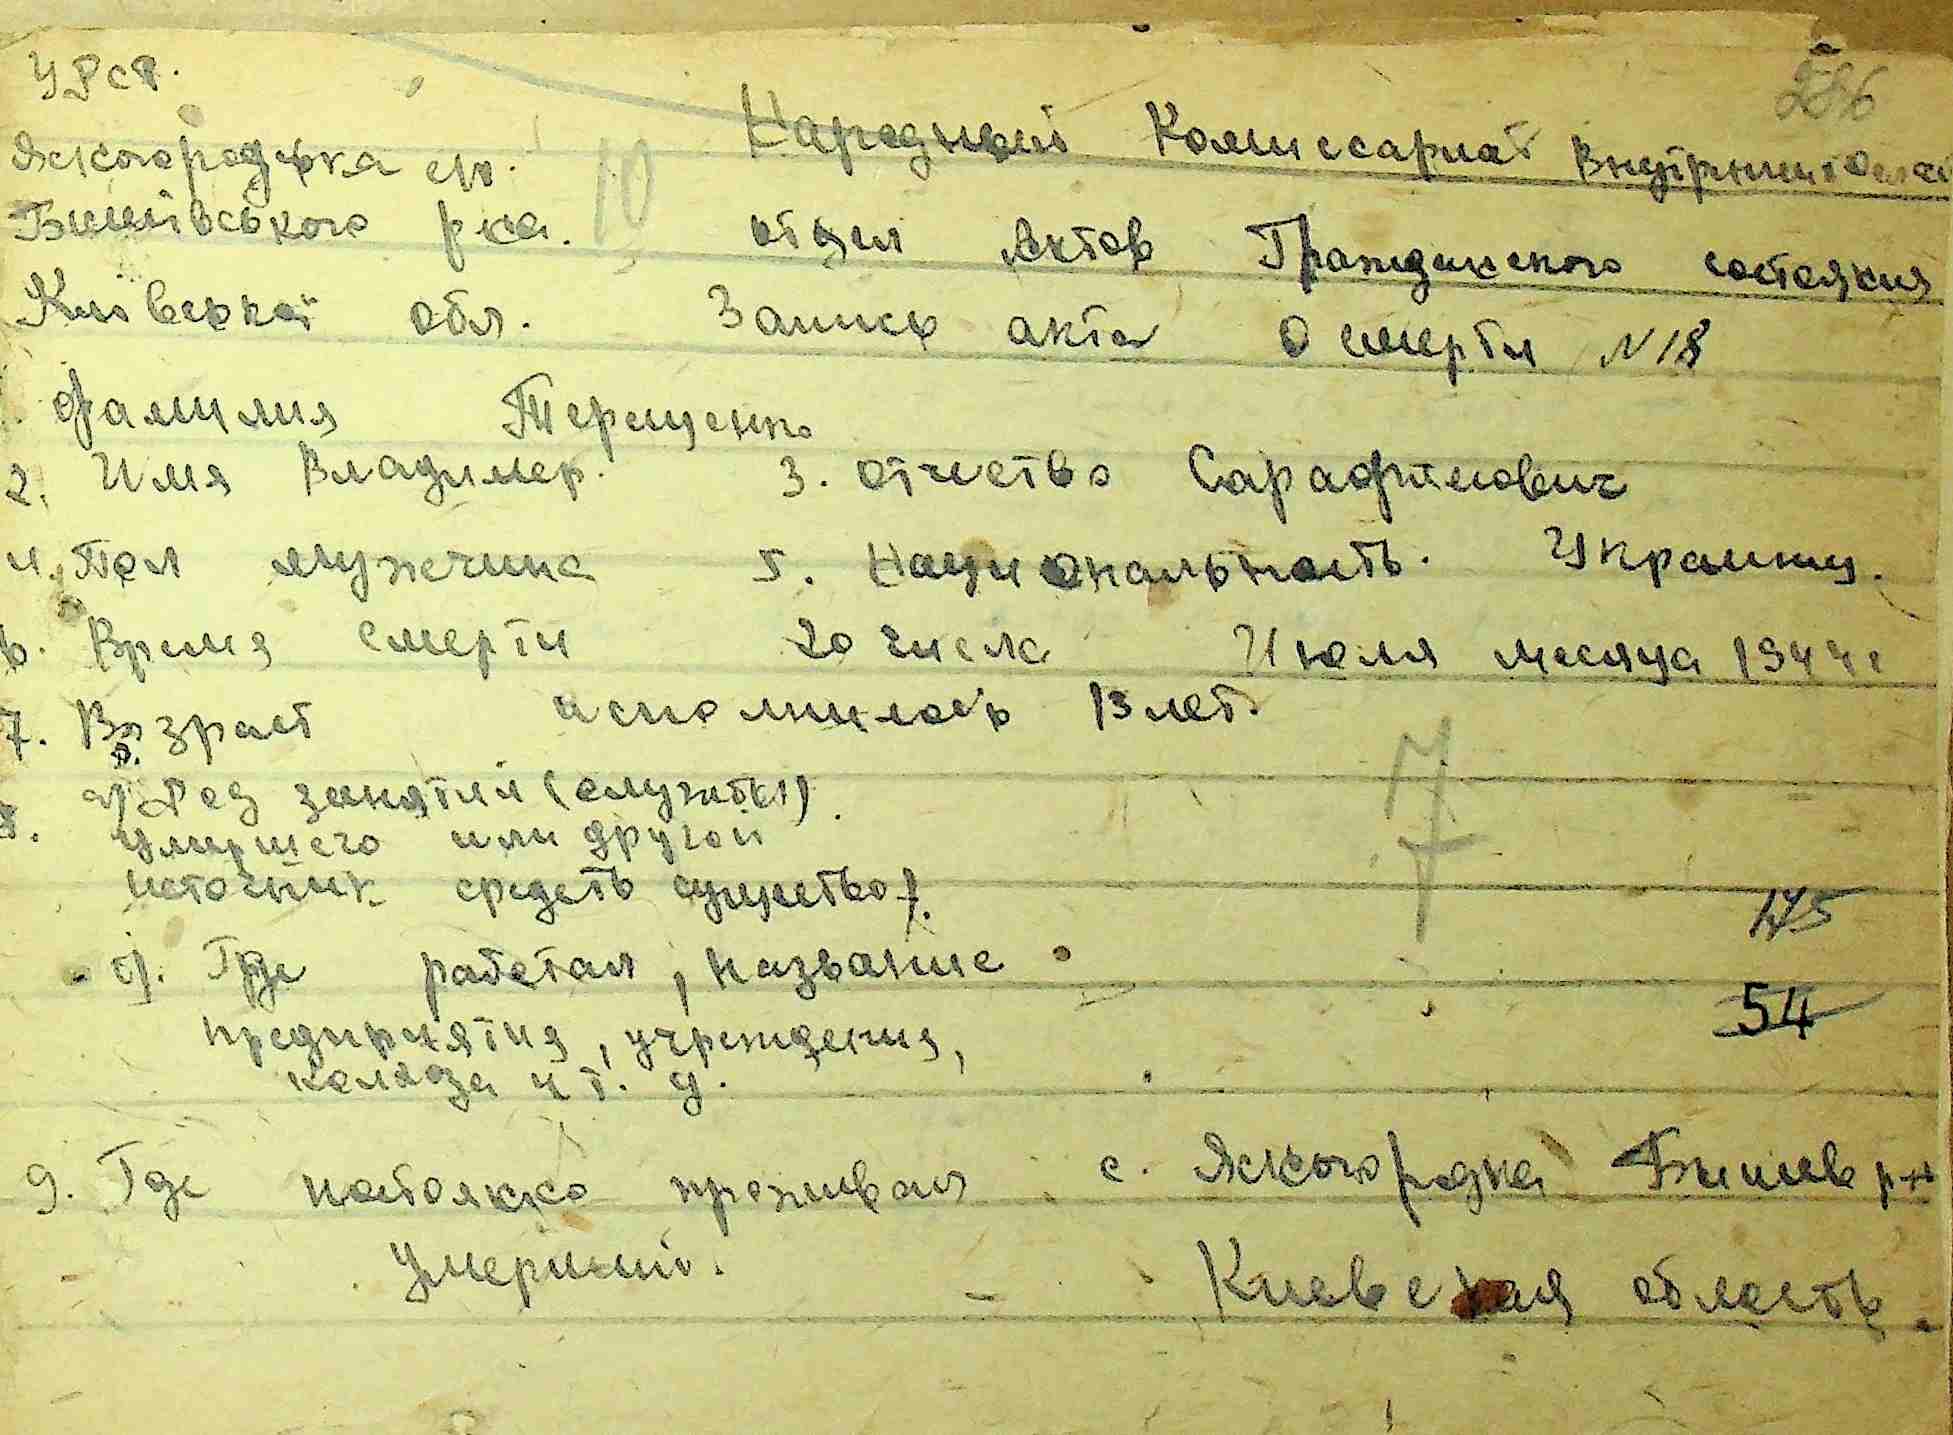 УРСР.
286
Яскогородська с/р.
Народный Комиссариат Внутрених Дел
Бишівського р-ка.
10
отдел Актов Гражданского состояния
Київської обл.
Запись акта О смерти N 18
Фамилия Терещенко
2. Имя Владимер. 3. отчество Сарафимович
4. Пол мужчина 5. Национальность. Украинц.
6. Время смерти 20 числа Июля месяца 1944 г
7. Возраст исполнилось 13 лет.
8. а) Род занятий (службы)
умершего или другой
источник средств существов.
7
145
б). Где работал, название
54
предприятия, учреждения,
колхоза и т. д.
9. Где постоянно проживал с. Яскогородка Бишев р-н
умерший. Киевская область.